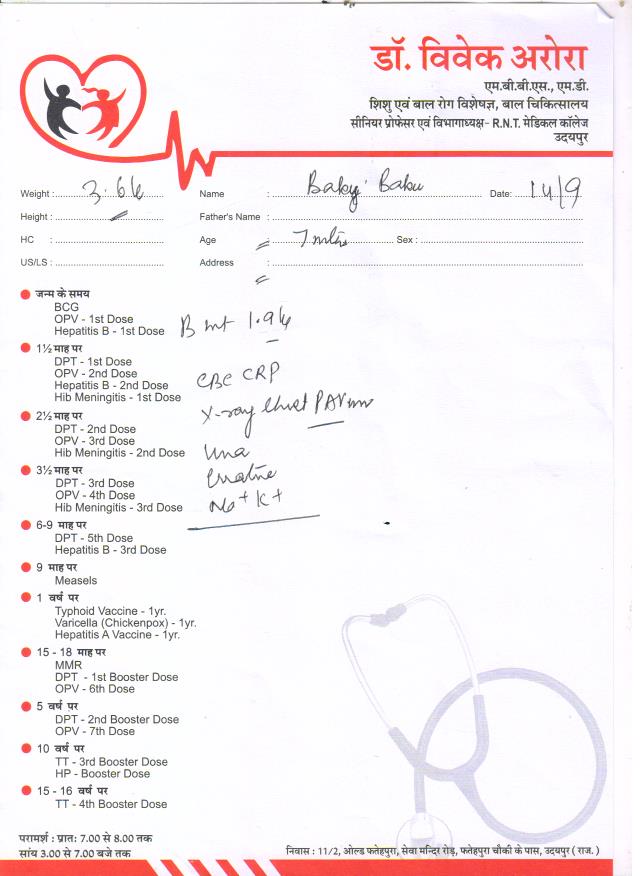 डॉ. विवेक अरोरा
एम.बी.बी.एस., एम.डी.
शिशु एवं बाल रोग विशेषज्ञ, बाल चिकित्सालय
सीनियर प्रोफेसर एवं विभागाध्यक्ष- R.N.T. मेडिकल कॉलेज
उदयपुर
Weight : 3.6 Name : Baby Date: 14/9
Height : Father's Name :
HC : Age : 7 mths Sex :
US/LS : Address :
जन्म के समय
BCG
OPV - 1st Dose
Hepatitis B - 1st Dose
B wt 1.9
1½ माह पर
DPT - 1st Dose
OPV - 2nd Dose
Hepatitis B - 2nd Dose
Hib Meningitis - 1st Dose
CBC CRP
X-ray Chest PA View
2½ माह पर
DPT - 2nd Dose
OPV - 3rd Dose
Hib Meningitis - 2nd Dose
Urea
3½ माह पर
DPT - 3rd Dose
OPV - 4th Dose
Hib Meningitis - 3rd Dose
Na+ K+
6-9 माह पर
DPT - 5th Dose
Hepatitis B - 3rd Dose
9 माह पर
Measels
1 वर्ष पर
Typhoid Vaccine - 1yr.
Varicella (Chickenpox) - 1yr.
Hepatitis A Vaccine - 1yr.
15 - 18 माह पर
MMR
DPT - 1st Booster Dose
OPV - 6th Dose
5 वर्ष पर
DPT - 2nd Booster Dose
OPV - 7th Dose
10 वर्ष पर
TT - 3rd Booster Dose
HP - Booster Dose
15 - 16 वर्ष पर
TT - 4th Booster Dose
परामर्श : प्रातः 7.00 से 8.00 तक
सांय 3.00 से 7.00 बजे तक
निवास : 11/2, ओल्ड फतेहपुरा, सेवा मन्दिर रोड़, फतेहपुरा चौकी के पास, उदयपुर ( राज. )